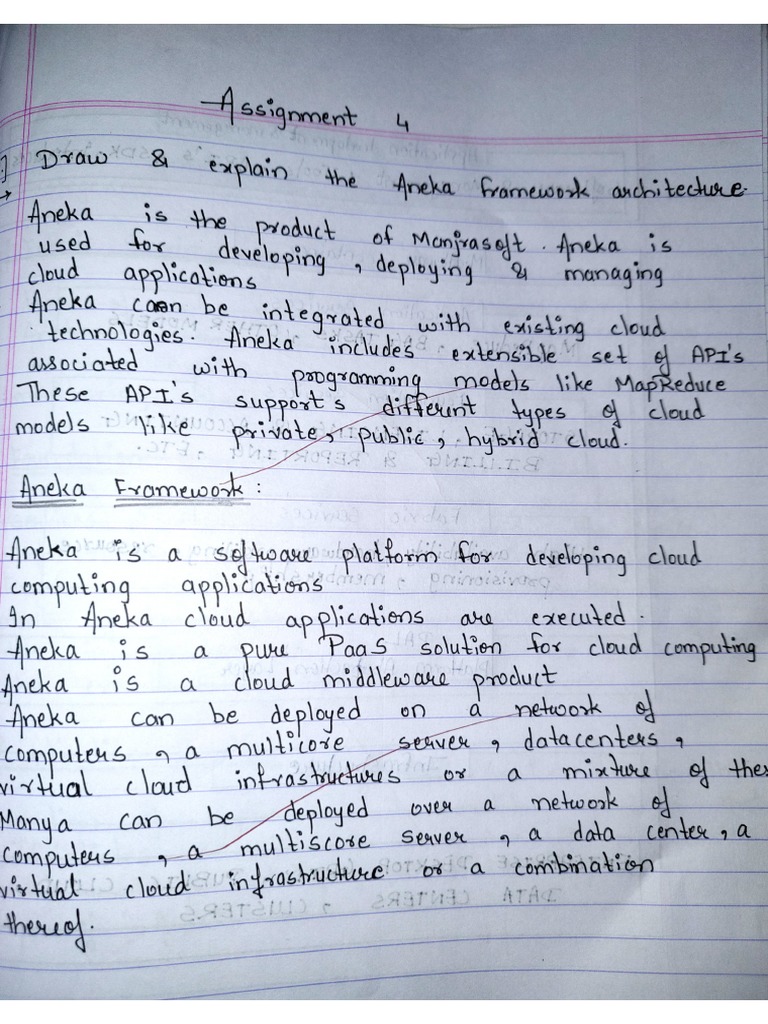 Assignment 4
Draw & explain the Aneka framework architecture.
→ Aneka is the product of Manjrasoft. Aneka is
used for developing, deploying & managing
cloud applications
Aneka can be integrated with existing cloud
technologies. Aneka includes extensible set of API's
associated with programming models like MapReduce
These API's support's different types of cloud
models like private, public, hybrid cloud.
Aneka Framework:
Aneka is a software platform for developing cloud
computing applications
In Aneka cloud applications are executed.
Aneka is a pure PaaS solution for cloud computing
Aneka is a cloud middleware product
Aneka can be deployed on a network of
computers, a multicore server, datacenters,
virtual cloud infrastructures or a mixture of thes
Manya can be deployed over a network of
computers, a multiscore server, a data center, a
virtual cloud infrastructure or a combination
thereof.